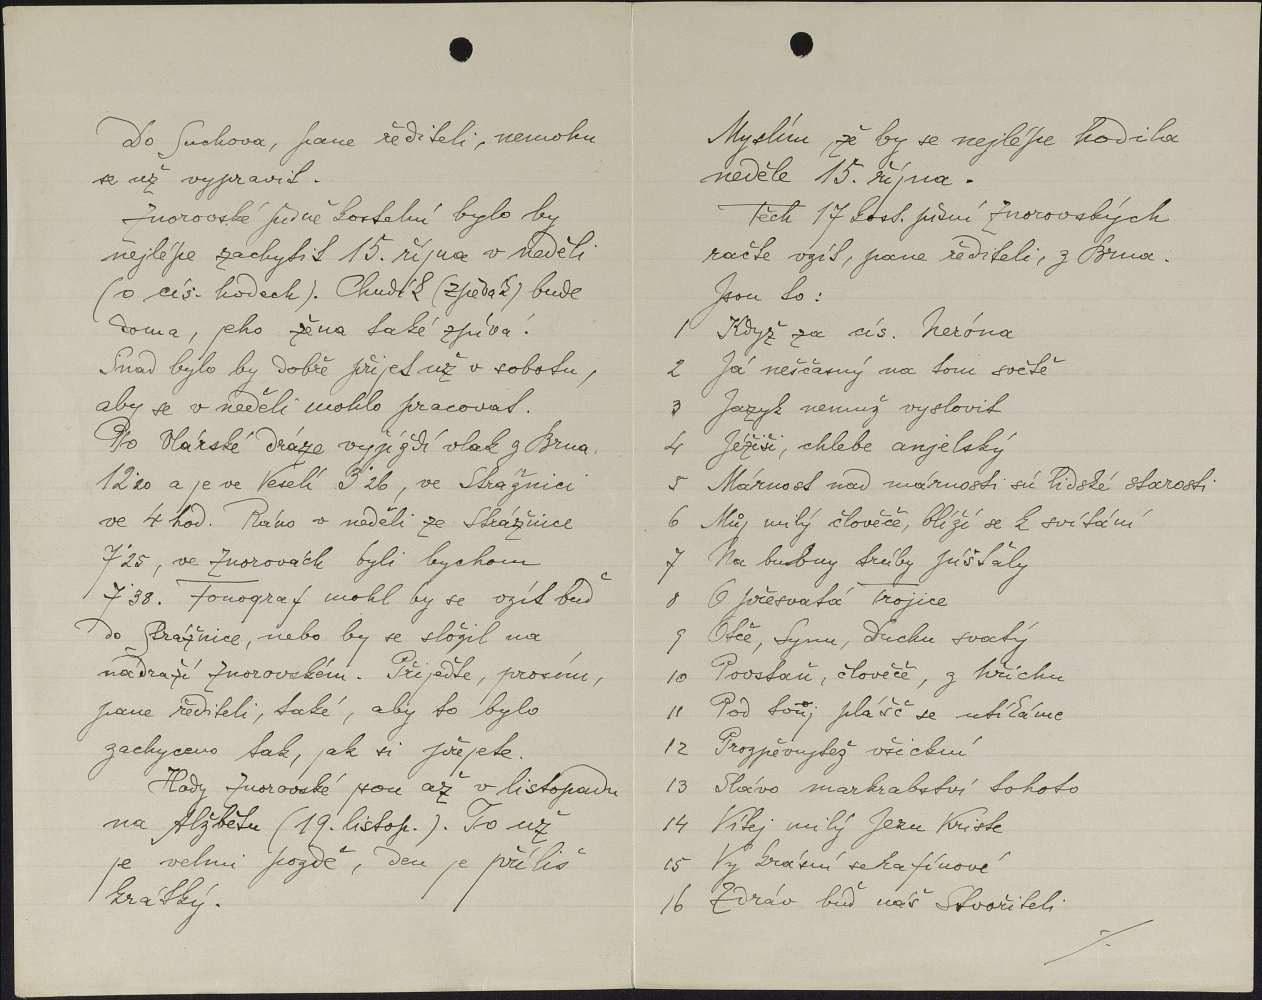 Do Suchova, pane řediteli, nemohu
se už vypravit.
Znorovské písně kostelní bylo by
nejlépe zachytit 15. října v neděli
(o cís. hodech). Chudík (zpěvák) bude
doma, jeho žena také zpívá.
Snad bylo by dobře přijet už v sobotu,
aby se v neděli mohlo pracovat.
Po Vlárské dráze vyjíždí vlak z Brna
12˙20 a je ve Veselí 3˙26, ve Strážnici
ve 4 hod. Ráno v neděli ze Strážnice
7˙25, ve Znorovách byli bychom
7˙38. Fonograf mohl by se vzít buď
do Strážnice, nebo by se složil na
nádraží Znorovském. Přijeďte, prosím,
pane řediteli, také, aby to bylo
zachyceno tak, jak si přejete.
Hody Znorovské jsou až v listopadu
na Alžbětu (19. listop.). To už
je velmi pozdě, den je příliš
krátký.
Myslím, že by se nejlépe hodila
neděle 15. října.
Těch 17 kost. písní Znorovských
račte vzít, pane řediteli, z Brna.
Jsou to:
1 Když za cís. Neróna
2 Já nešťasný na tom světě
3 Jazyk nemuž vyslovit
4 Ježiši, chlebe anjelský
5 Márnost nad márnosti sú lidské starosti
6 Můj milý člověče, blíží se k svítání
7 Na bubny trúby píšťaly
8 O přesvatá Trojice
9 Otče, Synu, Duchu svatý
10 Povstaň, člověče, z hříchu
11 Pod tvůj plášč se utíkáme
12 Prozpěvujtež všickni
13 Slávo markrabství tohoto
14 Vítej milý Jezu Kriste
15 Vy krásní serafínové
16 Zdráv buď náš Stvořiteli
./.